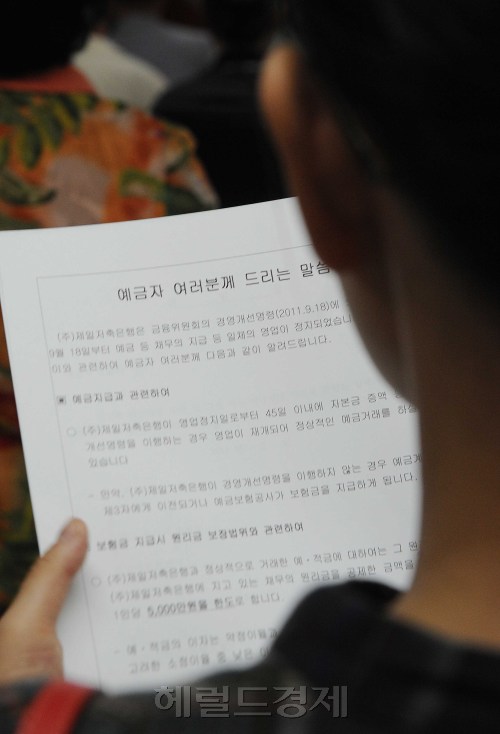 예금자 여러분께 드리는 말씀
(주)제일저축은행은 금융위원회의 경영개선명령(2011.9.18)에
9월 18일부터 예금 등 채무의 지급 등 일체의 영업이 정지되었습니
이와 관련하여 예금자 여러분께 다음과 같이 알려드립니다.
▣ 예금지급과 관련하여
○ (주)제일저축은행이 영업정지일로부터 45일 이내에 자본금 증액
개선명령을 이행하는 경우 영업이 재개되어 정상적인 예금거래를 하실
있습니다
- 만약, (주)제일저축은행이 경영개선명령을 이행하지 않는 경우 예금계
제3자에게 이전되거나 예금보험공사가 보험금을 지급하게 됩니다.
보험금 지급시 원리금 보장범위와 관련하여
○ (주)제일저축은행과 정상적으로 거래한 예·적금에 대하여는 그 원
(주)제일저축은행에 지고 있는 채무의 원리금을 공제한 금액을
1인당 5,000만원을 한도로 합니다
- 예·적금의 이자는 약정이율과
고려한 소정이율 중 낮은
헤럴드경제